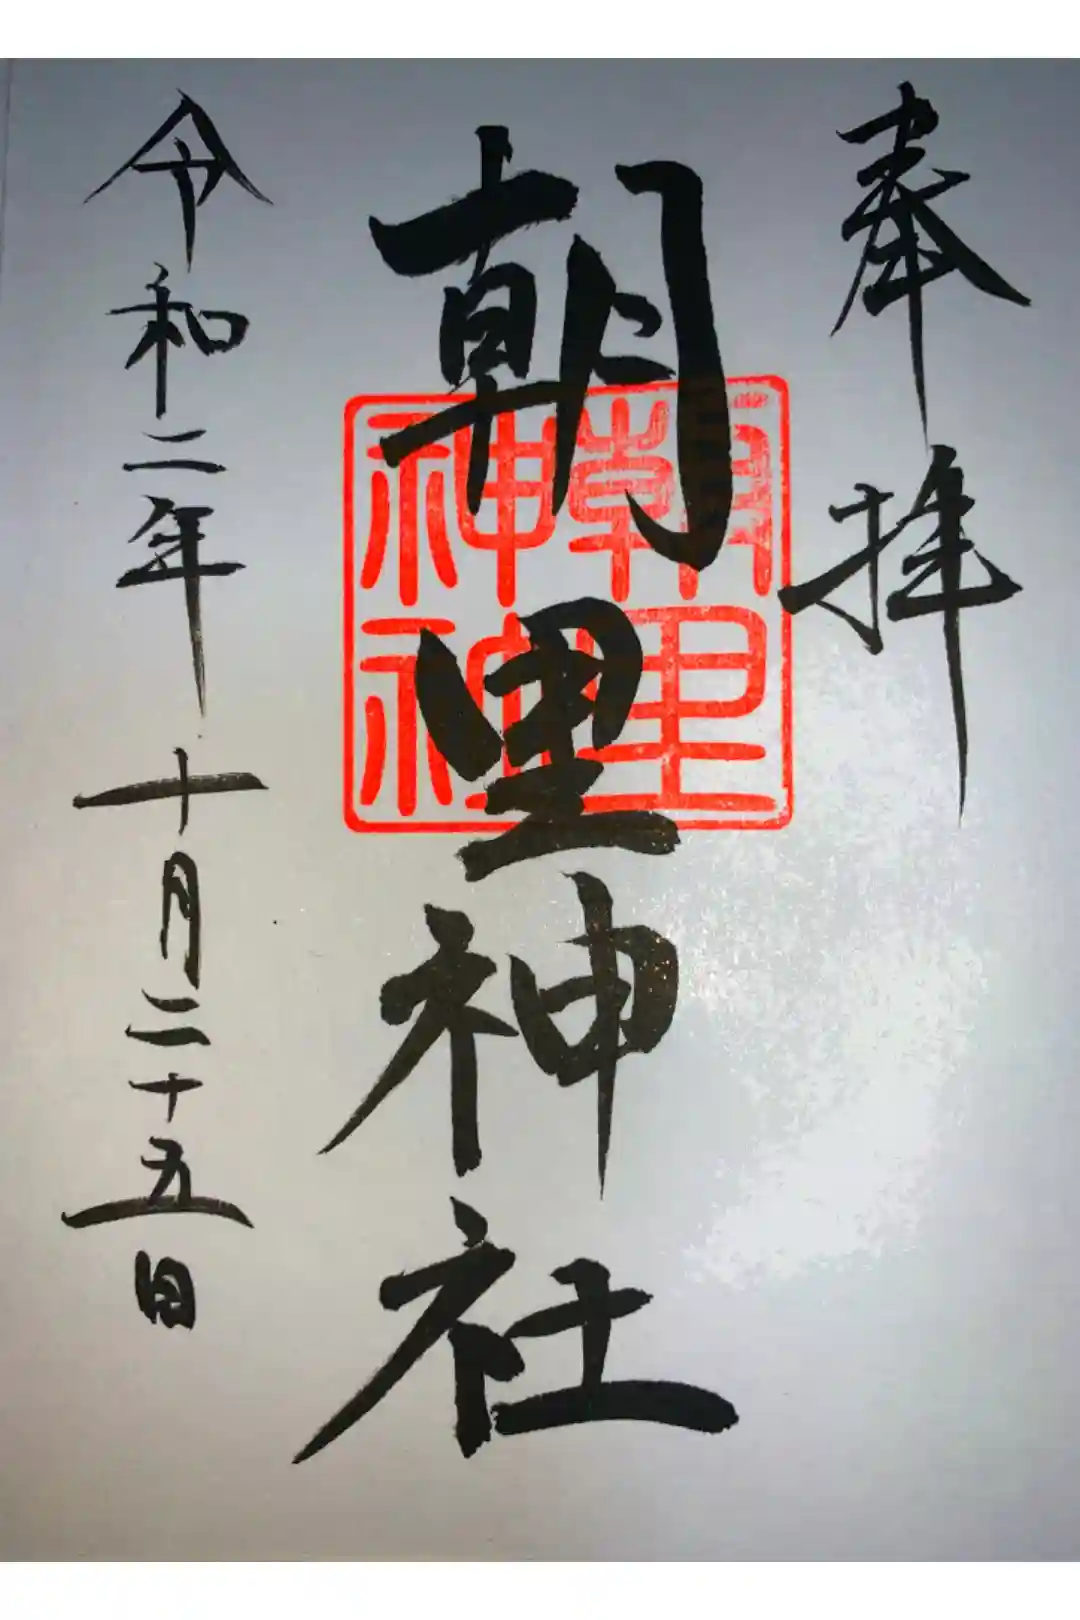 奉拝
朝里神社
朝里
神神
令和二年十月二十五日